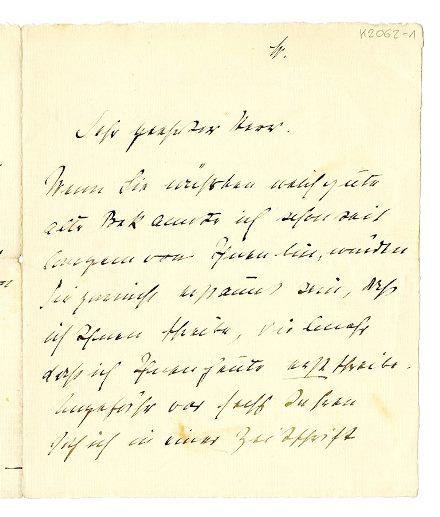 K2062-1
Sehr geehrter Herr.
Wenn Sie wüssten welch gute
alte Bekannte ich schon seit
langem von Ihnen bin, würden
Sie garnicht erstaunt sein, dass
ich Ihnen schreibe, vielmehr
dass ich Ihnen heute erst schreibe.
Ungefähr vor sechs Jahren
sah ich in einer Zeitschrift